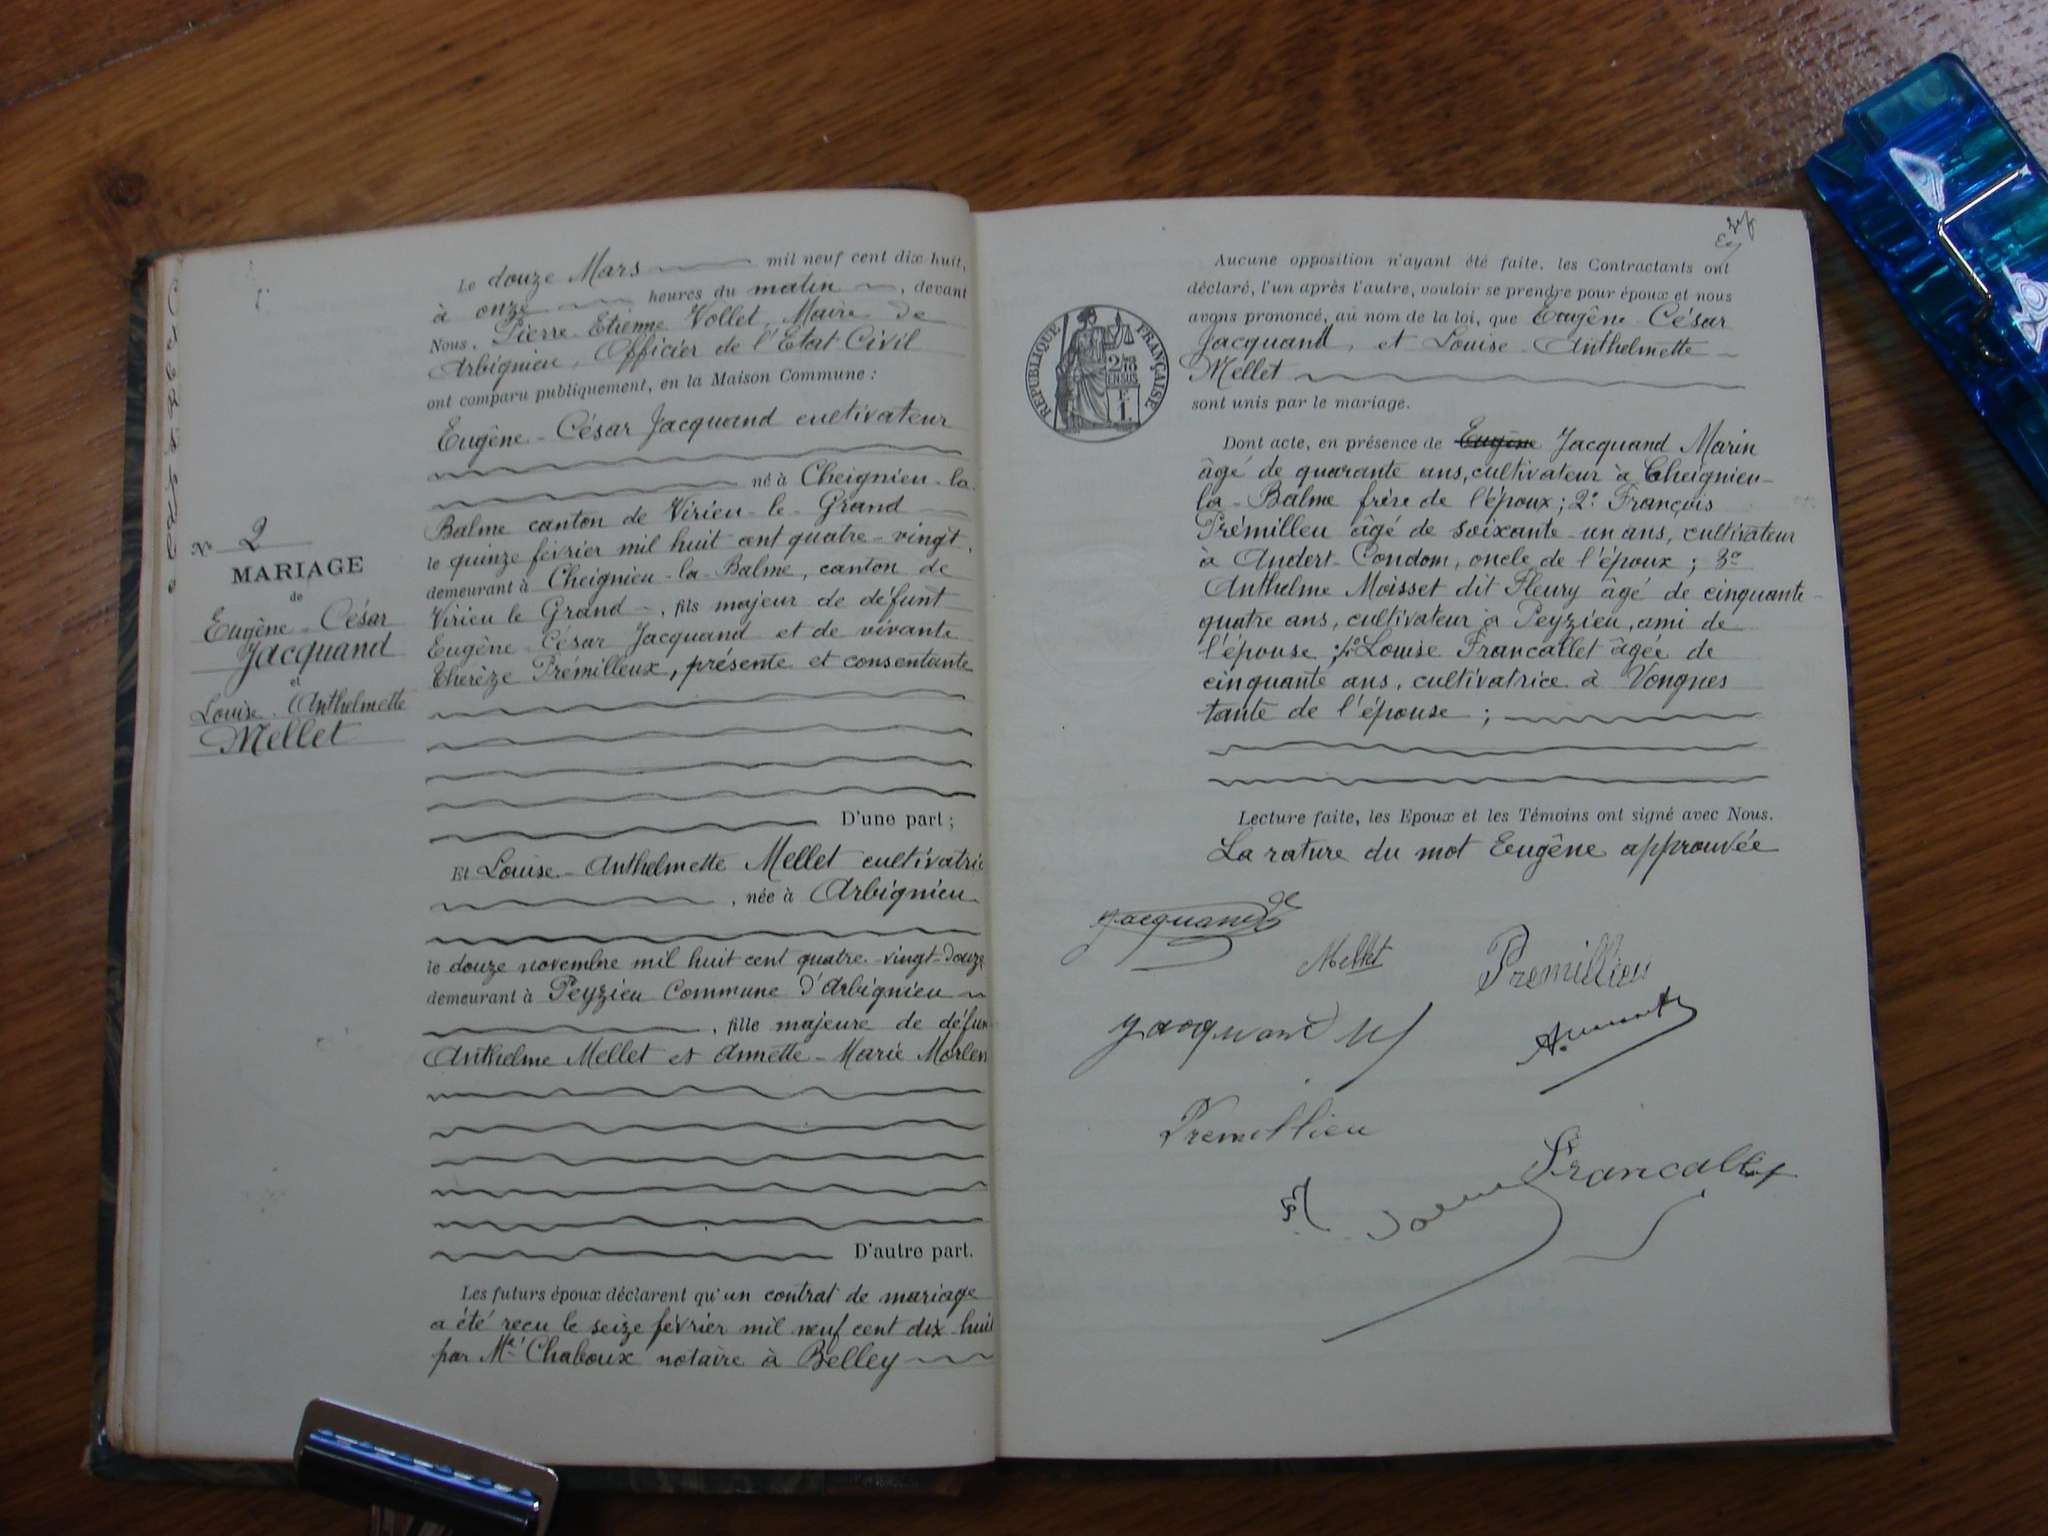 N° 2
MARIAGE
de
Eugène-César
Jacquand
et
Louise-Anthelmette
Mellet
Le douze Mars mil neuf cent dix-huit,
à onze heures du matin, devant
Nous, Pierre Etienne Vollet, Maire de
Arbignieu, Officier de l'Etat Civil
ont comparu publiquement, en la Maison Commune :
Eugène-César Jacquand cultivateur
né à Cheignieu-la-
Balme canton de Virieu-le-Grand
le quinze février mil huit cent quatre-vingt,
demeurant à Cheignieu-la-Balme, canton de
Virieu le Grand, fils majeur de défunt
Eugène-César Jacquand et de vivante
Therèze Prémilleux, présente et consentante
D'une part ;
Et Louise-Anthelmette Mellet cultivatric
, née à Arbignieu
le douze novembre mil huit cent quatre-vingt-douze
demeurant à Peyzieu Commune d'Arbignieu
, fille majeure de défun
Anthelme Mellet et Annette-Marie Morlen
D'autre part.
Les futurs époux déclarent qu'un contrat de mariage
a été reçu le seize février mil neuf cent dix-huit
par Me Chaboux notaire à Belley
Aucune opposition n'ayant été faite, les Contractants ont
déclaré, l'un après l'autre, vouloir se prendre pour époux et nous
avons prononcé, au nom de la loi, que Eugène-César
Jacquand, et Louise-Anthelmette
Mellet
sont unis par le mariage.
RÉPUBLIQUE FRANÇAISE
2/10
EN SUS
F.
1.
Dont acte, en présence de Eugène Jacquand Marin
âgé de quarante ans, cultivateur à Cheignieu-
la-Balme frère de l'époux ; 2° François
Prémilleu âgé de soixante-un ans, cultivateur
à Andert-Condom, oncle de l'époux ; 3°
Anthelme Moisset dit Fleury âgé de cinquante-
quatre ans, cultivateur à Peyzieu, ami de
l'épouse ; 4° Louise Francallet âgée de
cinquante ans, cultivatrice à Vongnes
tante de l'épouse ;
Lecture faite, les Epoux et les Témoins ont signé avec Nous.
La rature du mot Eugène approuvée
Jacquand
Mellet
Premillieu
Jacquand M
Premillieu
Francallet